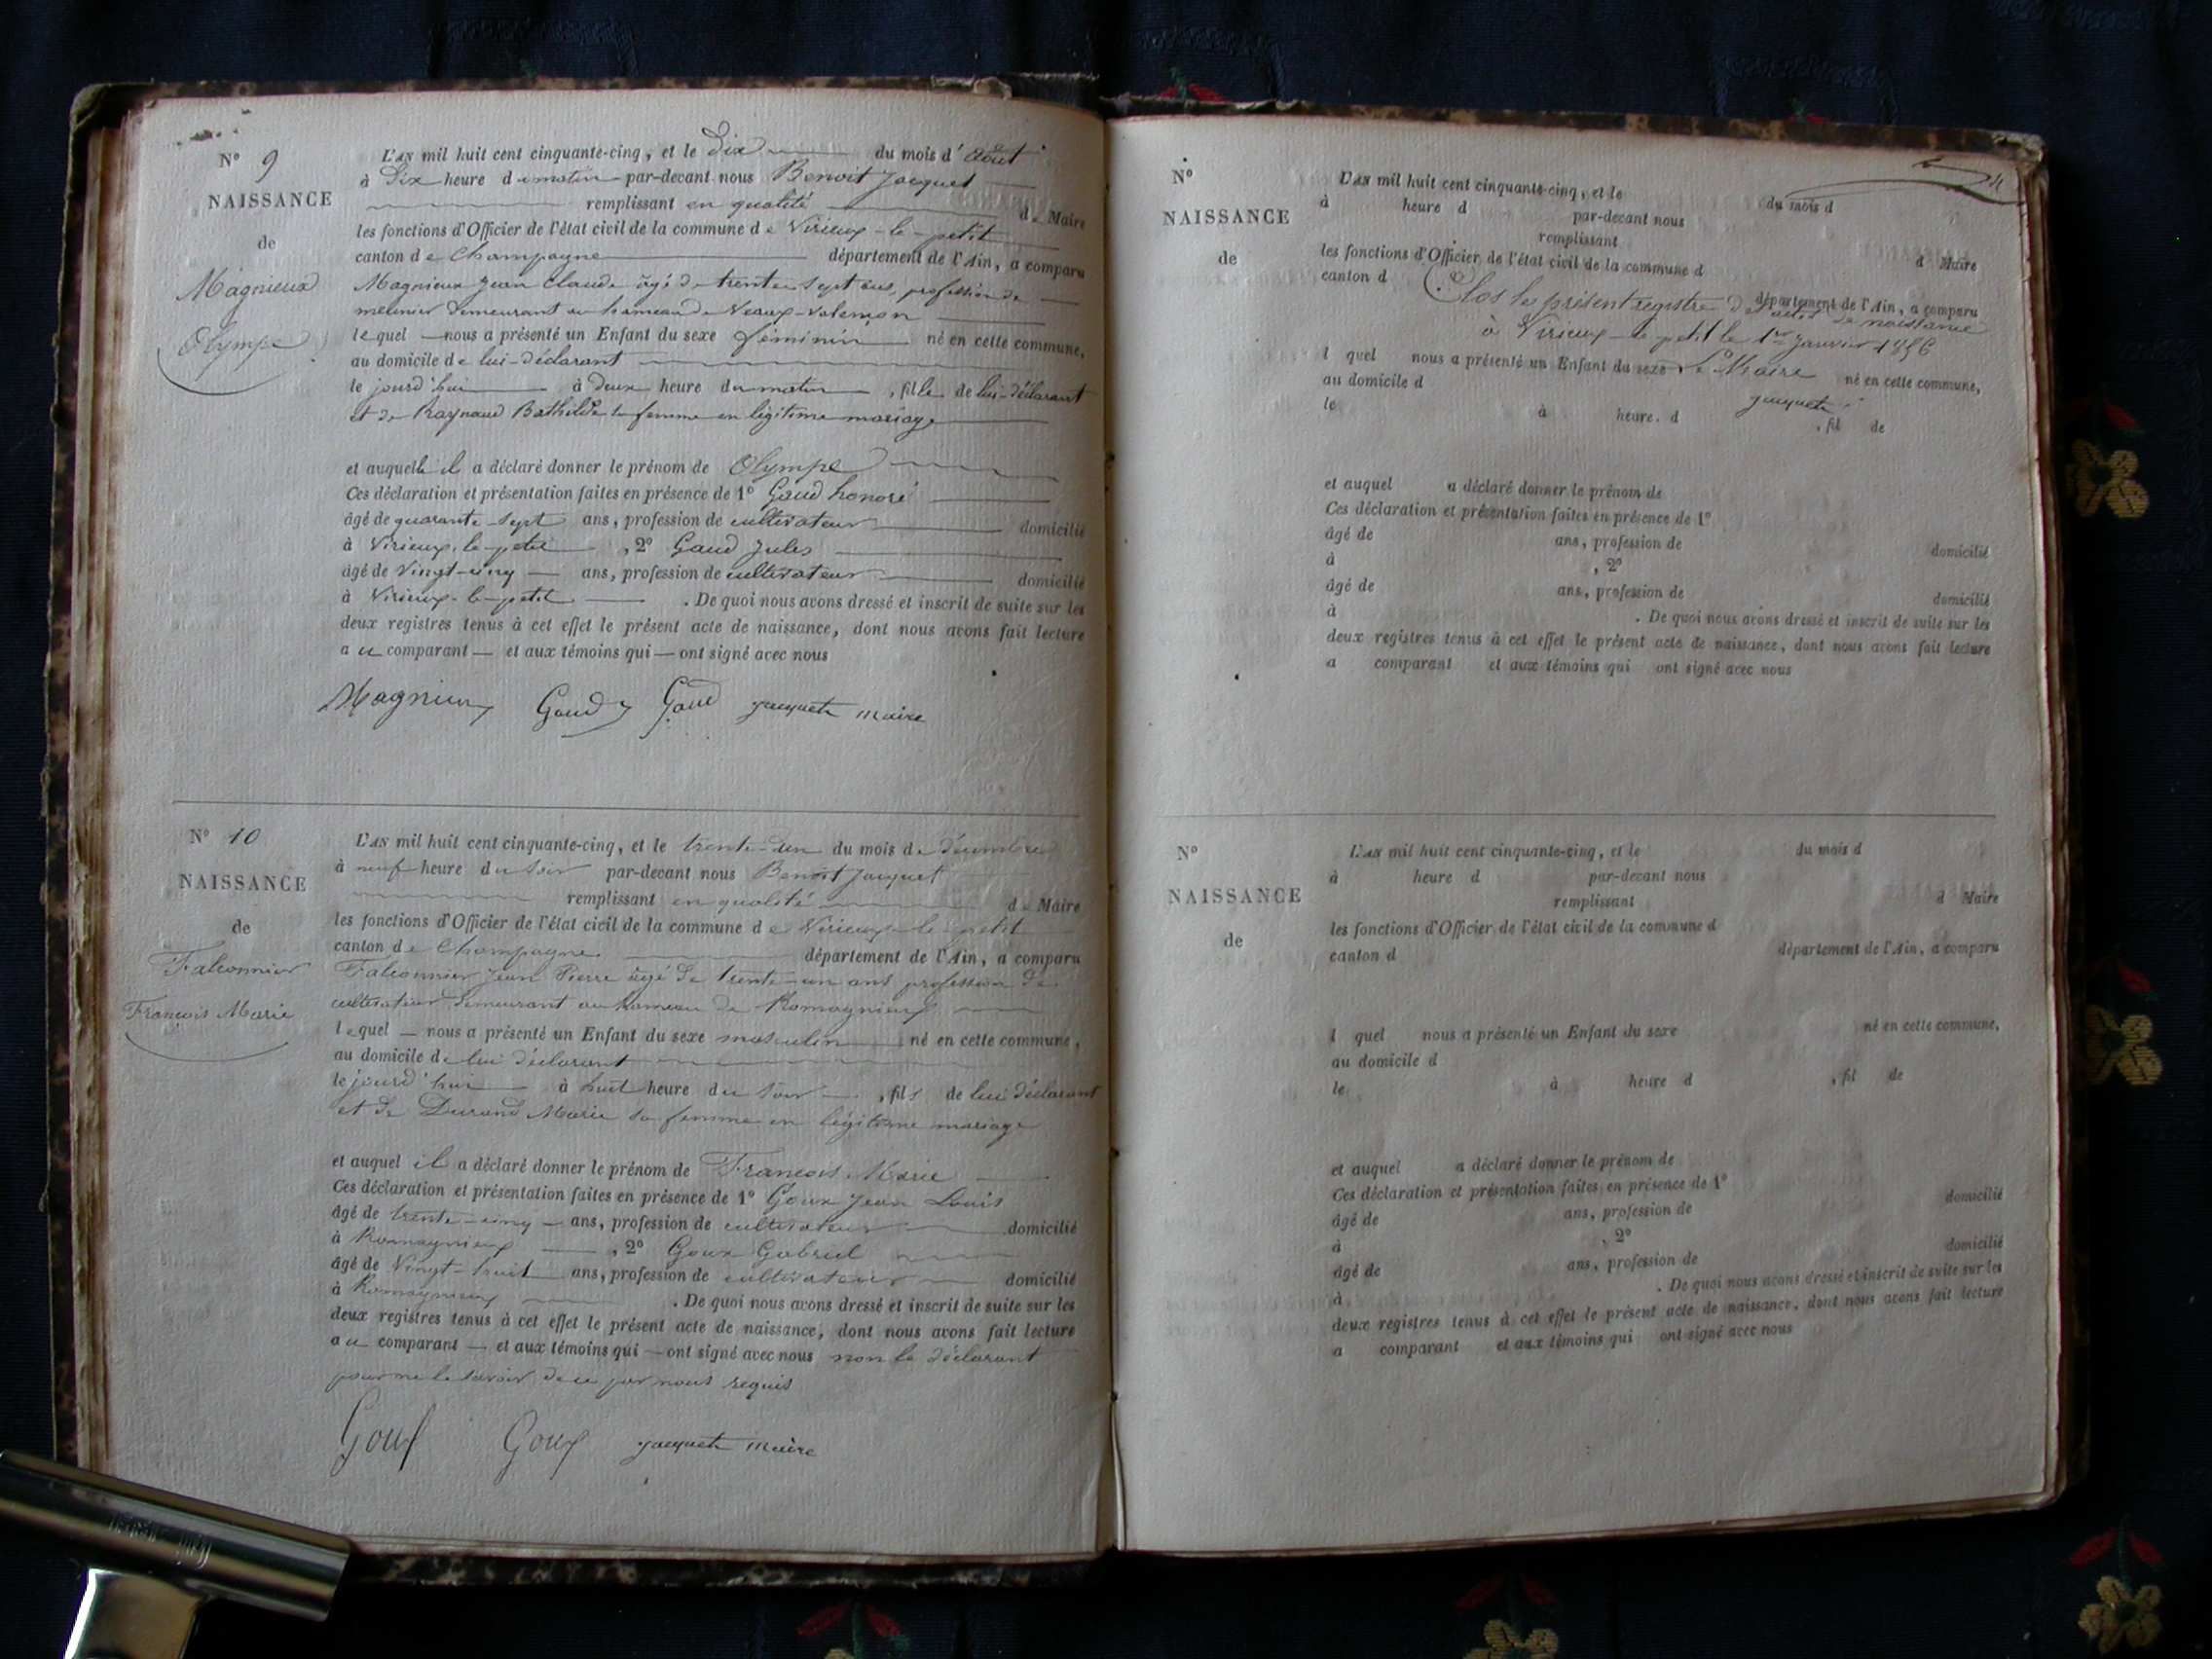 N° 9
NAISSANCE
de
Magnieux
Olympe
L'AN mil huit cent cinquante-cinq, et le dix du mois d'août
à dix heure du matin par-devant nous Benoit Jacquet
remplissant en qualité de Maire
les fonctions d'Officier de l'état civil de la commune de Virieux-le-petit
canton de Champagne département de l'Ain, a comparu
Magnieux Jean Claude âgé de trente sept ans, profession de
meunier demeurant au hameau de
lequel nous a présenté un Enfant du sexe féminin né en cette commune,
au domicile de lui-déclarant
le jourd'hui à deux heure du matin, fille de lui-déclarant
et de Raynaud Bathilde femme en légitime mariage
et auquelle il a déclaré donner le prénom de Olympe
Ces déclaration et présentation faites en présence de 1° Gaud honoré
âgé de quarante-sept ans, profession de cultivateur domicilié
à Virieux-le-petit, 2° Gaud Jules
âgé de vingt-cinq ans, profession de cultivateur domicilié
à Virieux-le-petit. De quoi nous avons dressé et inscrit de suite sur les
deux registres tenus à cet effet le présent acte de naissance, dont nous avons fait lecture
au comparant et aux témoins qui ont signé avec nous
Magnieux Gaud Gaud Jacquet maire
N° 10
NAISSANCE
de
Falconnier
François Marie
L'AN mil huit cent cinquante-cinq, et le trente-un du mois de décembre
à neuf heure du soir par-devant nous Benoit Jacquet
remplissant en qualité de Maire
les fonctions d'Officier de l'état civil de la commune de Virieux-le-petit
canton de Champagne département de l'Ain, a comparu
Falconnier Jean Pierre âgé de trente-un ans profession de
cultivateur demeurant au hameau de Romagnieux
lequel nous a présenté un Enfant du sexe masculin né en cette commune,
au domicile de lui déclarant
le jourd'hui à huit heure du soir, fils de lui déclarant
et de Durand Marie sa femme en légitime mariage
et auquel il a déclaré donner le prénom de François Marie
Ces déclaration et présentation faites en présence de 1° Goux Jean Louis
âgé de trente-cinq ans, profession de cultivateur domicilié
à Romagnieux, 2° Goux Gabriel
âgé de vingt-huit ans, profession de cultivateur domicilié
à Romagnieux. De quoi nous avons dressé et inscrit de suite sur les
deux registres tenus à cet effet le présent acte de naissance, dont nous avons fait lecture
au comparant et aux témoins qui ont signé avec nous non le déclarant
pour ne le savoir de ce par nous requis
Goux Goux Jacquet maire
N°
NAISSANCE
de
L'AN mil huit cent cinquante-cinq, et le du mois d
à heure d par-devant nous
remplissant d Maire
les fonctions d'Officier de l'état civil de la commune d
canton d département de l'Ain, a comparu
Clos le présent registre d'actes de naissance
à Virieux-le-petit le 1er Janvier 1856
l quel nous a présenté un Enfant du sexe né en cette commune,
Le Maire
au domicile d
Jacquet
le à heure d , fil de
et auquel a déclaré donner le prénom de
Ces déclaration et présentation faites en présence de 1°
âgé de ans, profession de domicilié
à , 2°
âgé de ans, profession de domicilié
à . De quoi nous avons dressé et inscrit de suite sur les
deux registres tenus à cet effet le présent acte de naissance, dont nous avons fait lecture
a comparant et aux témoins qui ont signé avec nous
N°
NAISSANCE
de
L'AN mil huit cent cinquante-cinq, et le du mois d
à heure d par-devant nous
remplissant d Maire
les fonctions d'Officier de l'état civil de la commune d
canton d département de l'Ain, a comparu
l quel nous a présenté un Enfant du sexe né en cette commune,
au domicile d
le à heure d , fil de
et auquel a déclaré donner le prénom de
Ces déclaration et présentation faites en présence de 1°
âgé de ans, profession de domicilié
à , 2°
âgé de ans, profession de domicilié
à . De quoi nous avons dressé et inscrit de suite sur les
deux registres tenus à cet effet le présent acte de naissance, dont nous avons fait lecture
a comparant et aux témoins qui ont signé avec nous